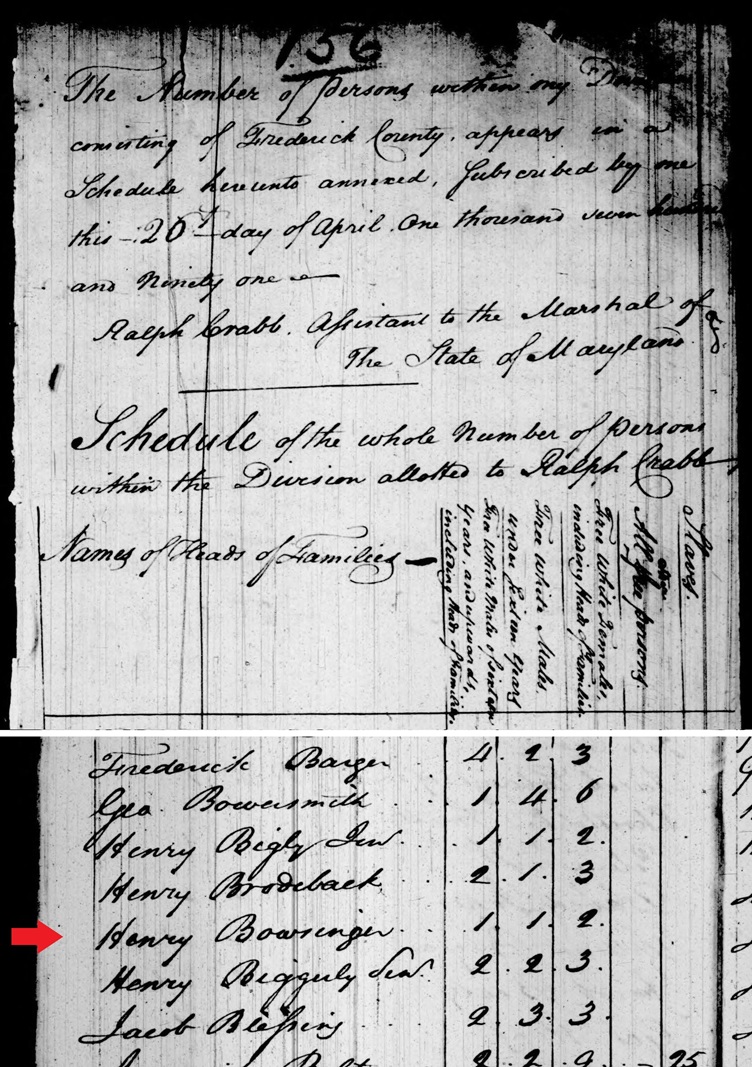 156
The Number of persons within my
consisting of Frederick County, appears in a
Schedule hereunto annexed, Subscribed by me
this 20t day of April One thousand seven hundred
and Ninety one
Ralph Crabb. Assistant to the Marshal of
The State of Maryland.
Schedule of the whole Number of persons
within the Division allotted to Ralph Crabb
Names of Heads of Families
Free White Males of sixteen
Years, and upwards,
including Heads of Families.
Free White Males
under Sixteen Years
Free White Females,
including Heads of Families
All other free persons.
Slaves.
Frederick Barger 4 2 3
Geo Bowersmith 1 4 6
Henry Bigly Jun. 1 1 2
Henry Brodeback 2 1 3
Henry Bowsinger 1 1 2
Henry Biggerly Sen. 2 2 3
Jacob Blessing 2 3 3
25